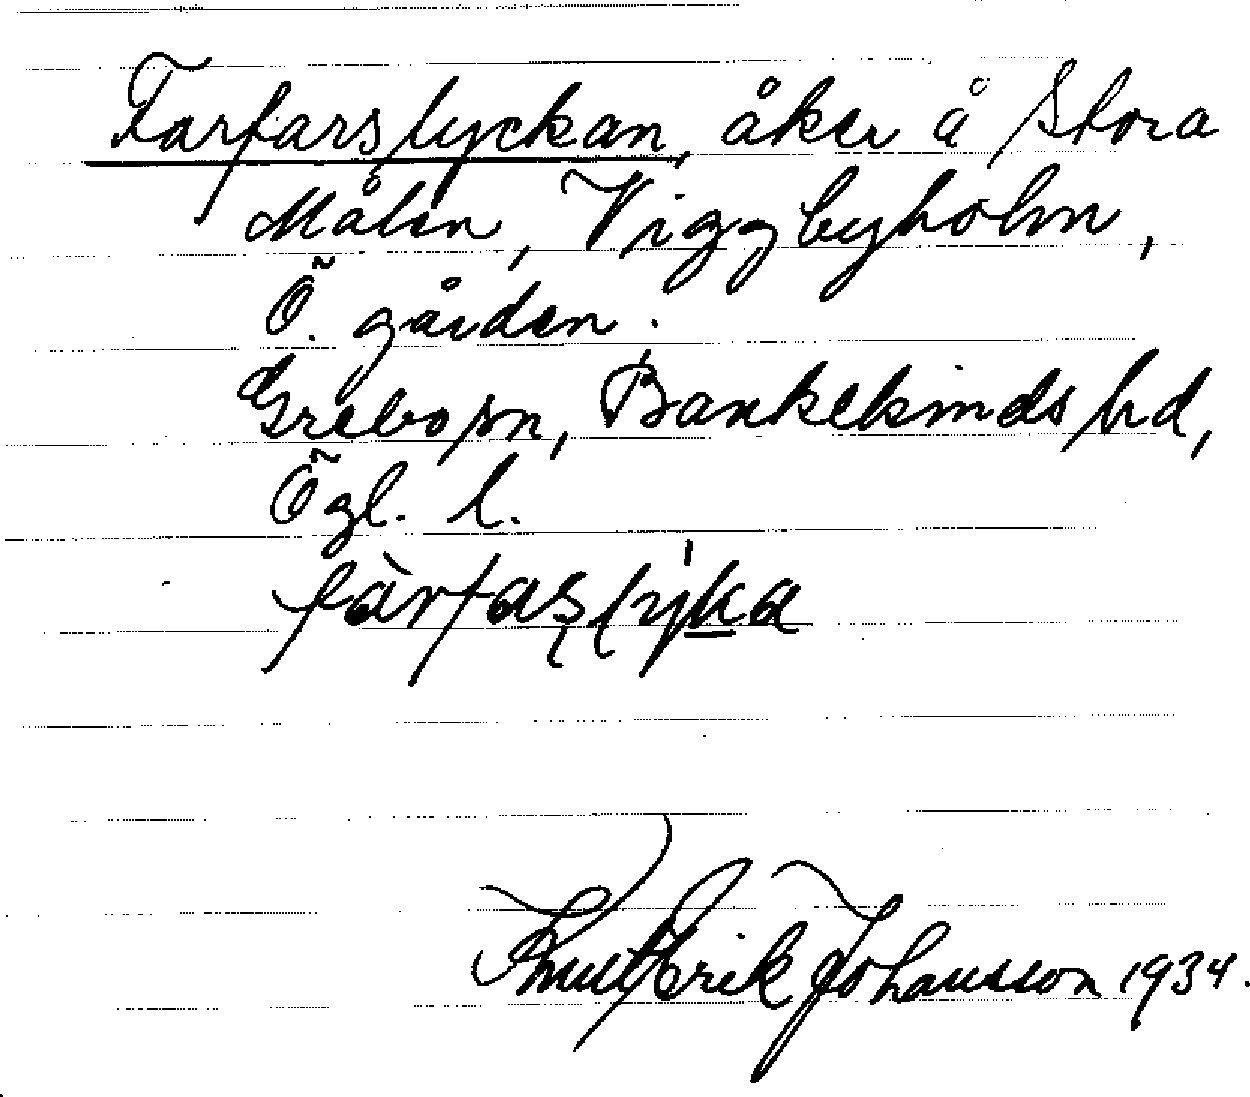 Farfarslyckan, åker å Stora
Målen, Viggbyholm,
Ö. gården.
Grebo sn, Bankekinds hd,
Ögl. l.
fàrfaslýka
Knut Erik Johansson 1934.